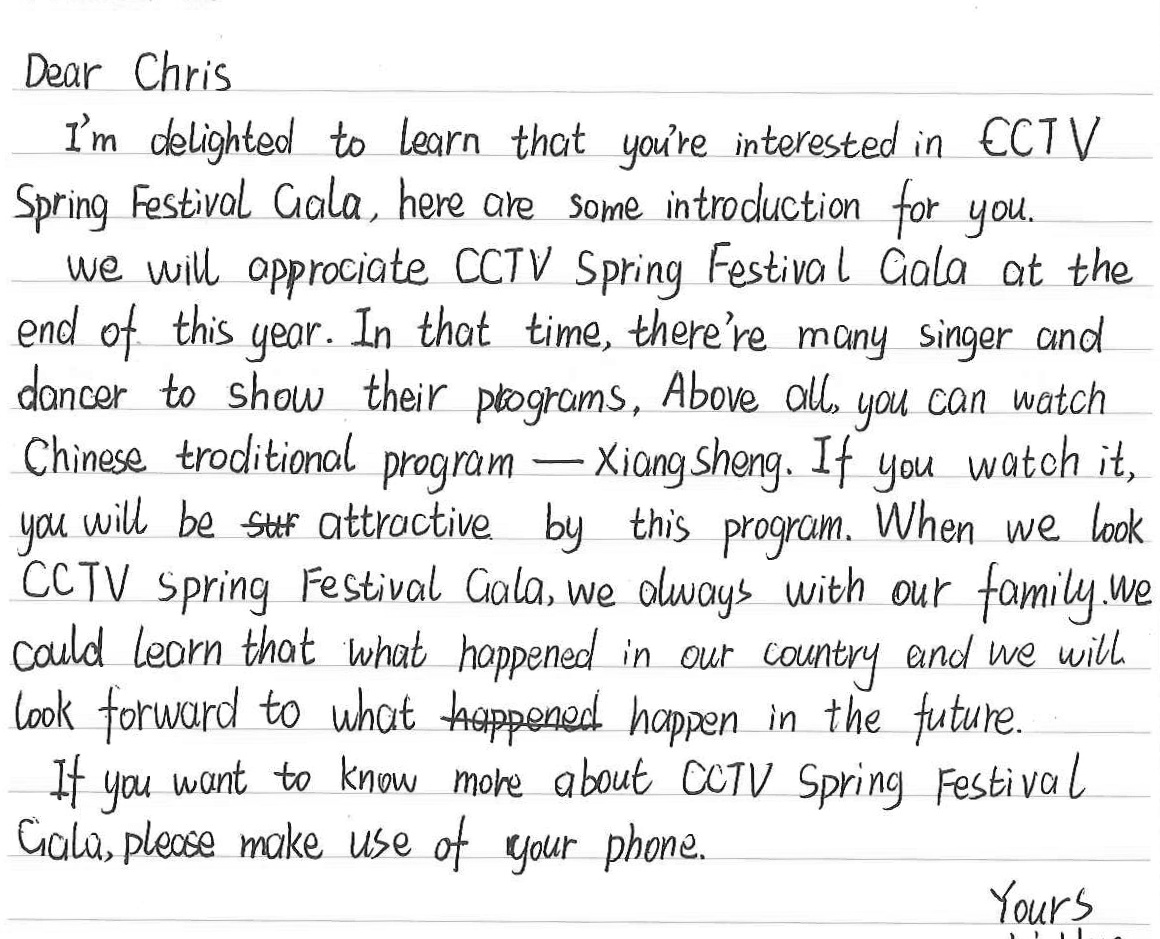 Dear Chris
I'm delighted to learn that you're interested in CCTV
Spring Festival Gala, here are some introduction for you.
we will approciate CCTV Spring Festival Gala at the
end of this year. In that time, there're many singer and
dancer to show their programs, Above all, you can watch
Chinese troditional program — Xiangsheng. If you watch it,
you will be sur attractive by this program. When we look
CCTV spring Festival Gala, we always with our family. we
could learn that what happened in our country and we will
look forward to what happened happen in the future.
If you want to know more about CCTV Spring Festival
Gala, please make use of your phone.
Yours